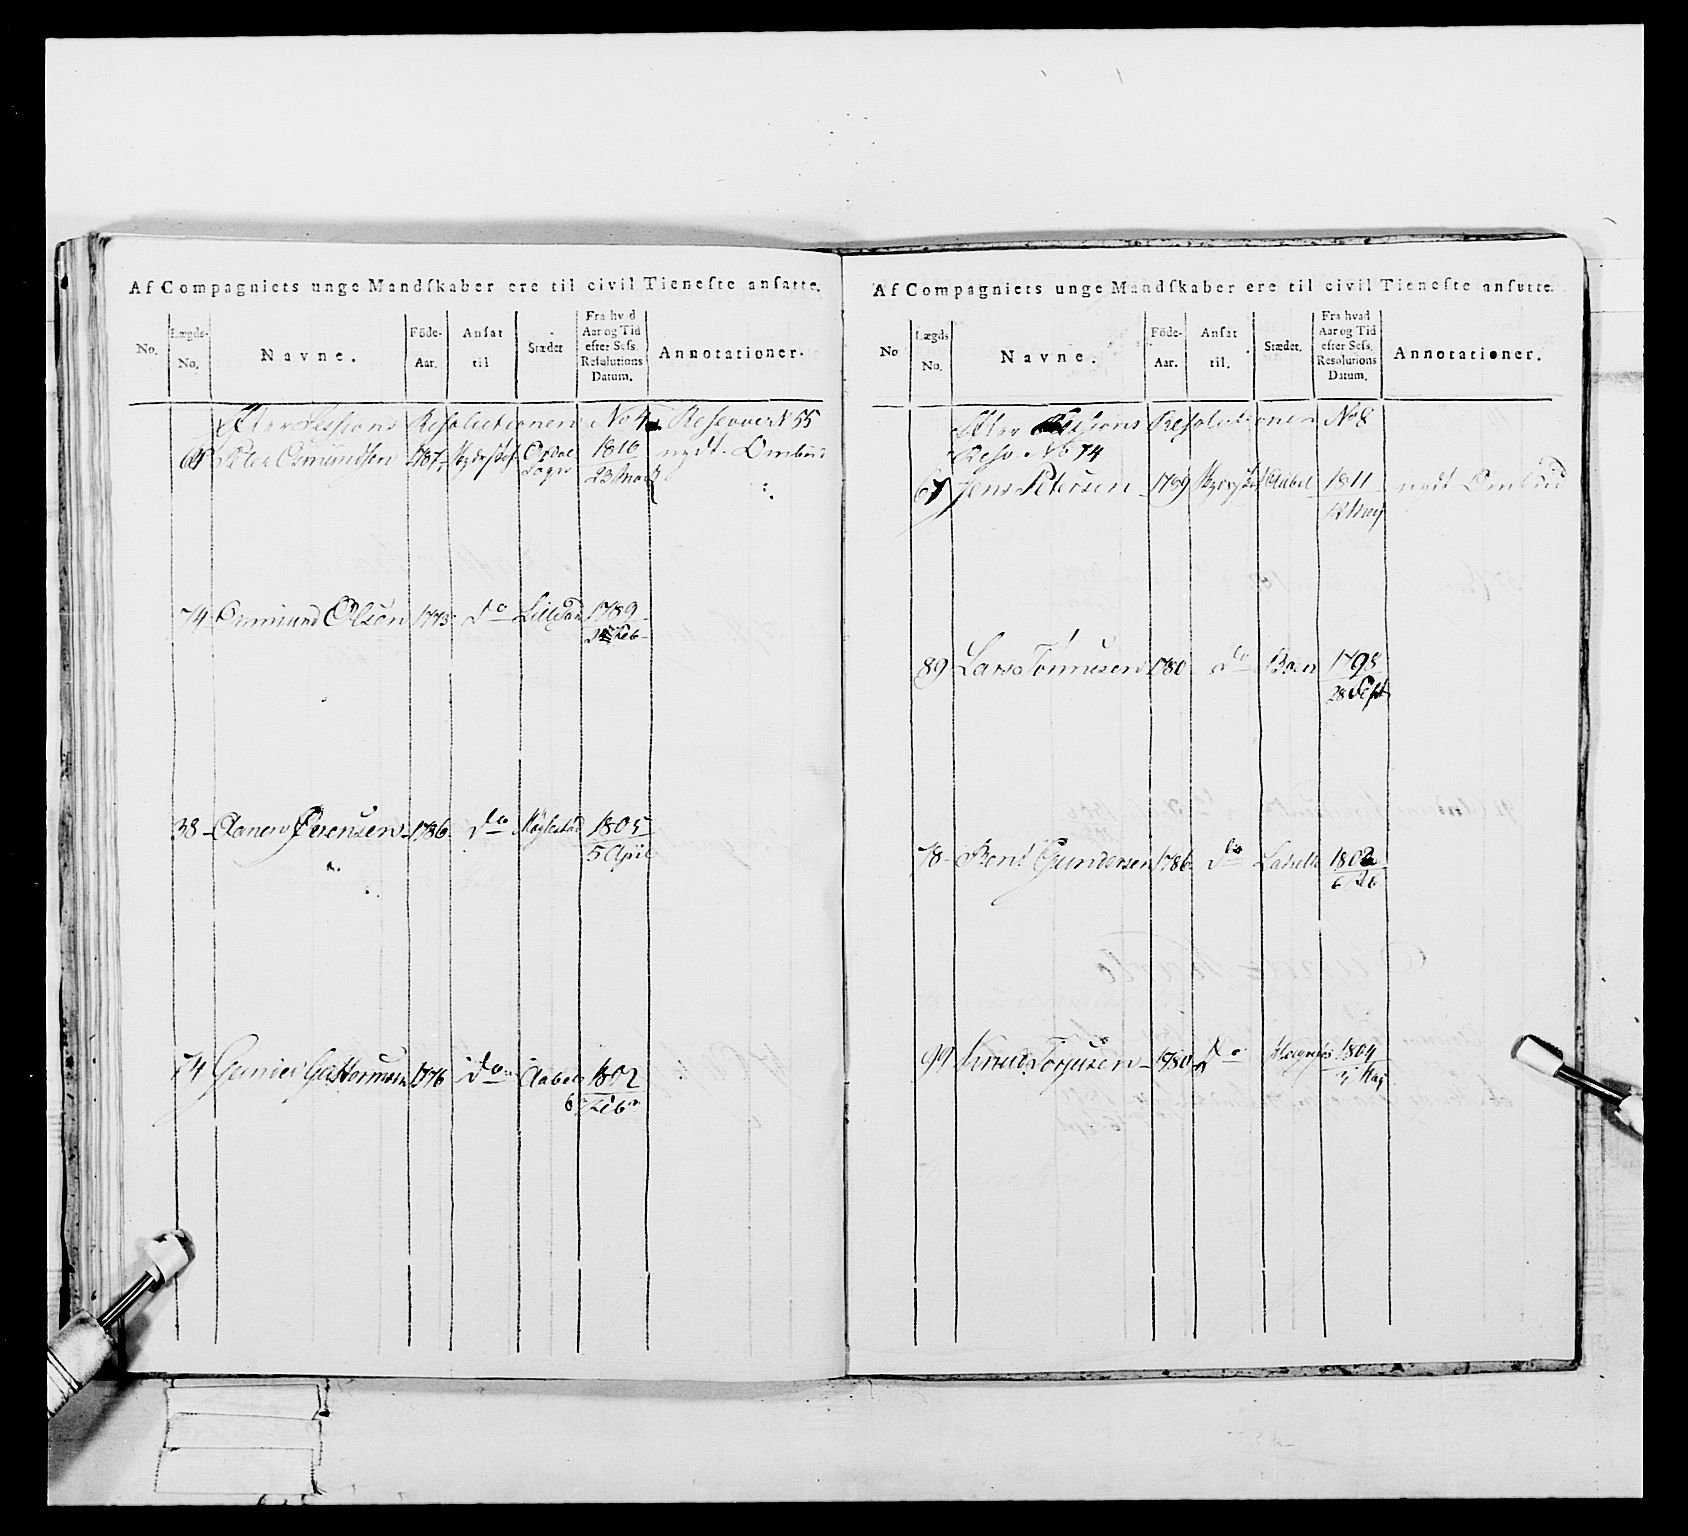 Af Compagniets unge Mandſkaber ere til civil Tieneſte anſatte.
No. Lægds-No. Navne. Föde-Aar. Anſat til Stædet Fra hvad Aar og Tid efter Seſs. Reſolutions Datum. Annotationer.
Efter Sessions Resolutionen No 4 Reserver N 55
Peter Osmundsen 1787 1810 nydt Ombud
23 Mar
74 Ommund Olsen 1773 do Lillesand 1789
Feb
38 Aanen Sørensen 1786 do Høglestad 1805
5 April
74 Gunder Guttormsen 1776 do Aabel 1802
6 Feb
Af Compagniets unge Mandſkaber ere til civil Tieneſte anſatte.
No Lægds No. Navne. Föde-Aar. Anſat til. Stædet. Fra hvad Aar og Tid efter Seſs. Reſolutions Datum. Annotationer.
Efter Resolutionen No 8
Resv. No 74
67 Jens Petersen 1789 Aabel 1811 nydt Ombud
12 May
89 Lars Tønnesen 1780 do Boen 1798
28 Sept
78 Bent Gundersen 1786 do 1802
6 Feb
99 Knud Torjusen 1780 do 1804
May